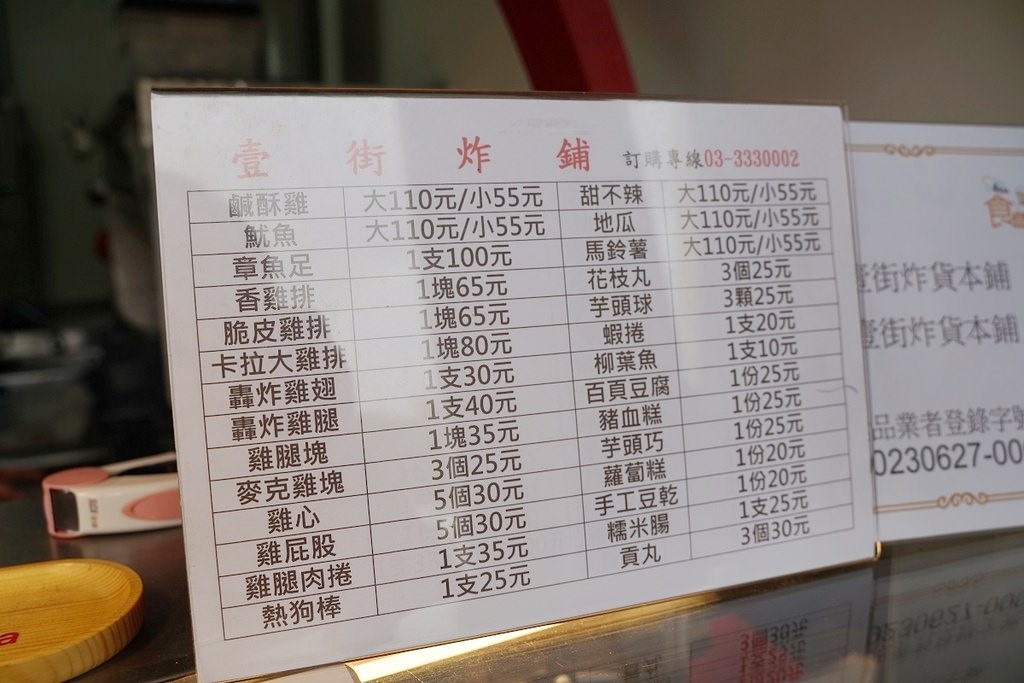 壹街炸鋪 訂購專線03-3330002
鹹酥雞 大110元/小55元 甜不辣 大110元/小55元
魷魚 大110元/小55元 地瓜 大110元/小55元
章魚足 1支100元 馬鈴薯 大110元/小55元
香雞排 1塊65元 花枝丸 3個25元
脆皮雞排 1塊65元 芋頭球 3顆25元
卡拉大雞排 1塊80元 蝦捲 1支20元
轟炸雞翅 1支30元 柳葉魚 1支10元
轟炸雞腿 1支40元 百頁豆腐 1份25元
雞腿塊 1塊35元 豬血糕 1份25元
麥克雞塊 3個25元 芋頭巧 1份25元
雞心 5個30元 蘿蔔糕 1份20元
雞屁股 5個30元 手工豆乾 1份20元
雞腿肉捲 1支35元 糯米腸 1支25元
熱狗棒 1支25元 貢丸 3個30元
食
壹街炸貨本鋪
壹街炸貨本鋪
品業者登錄字號
0230627-00